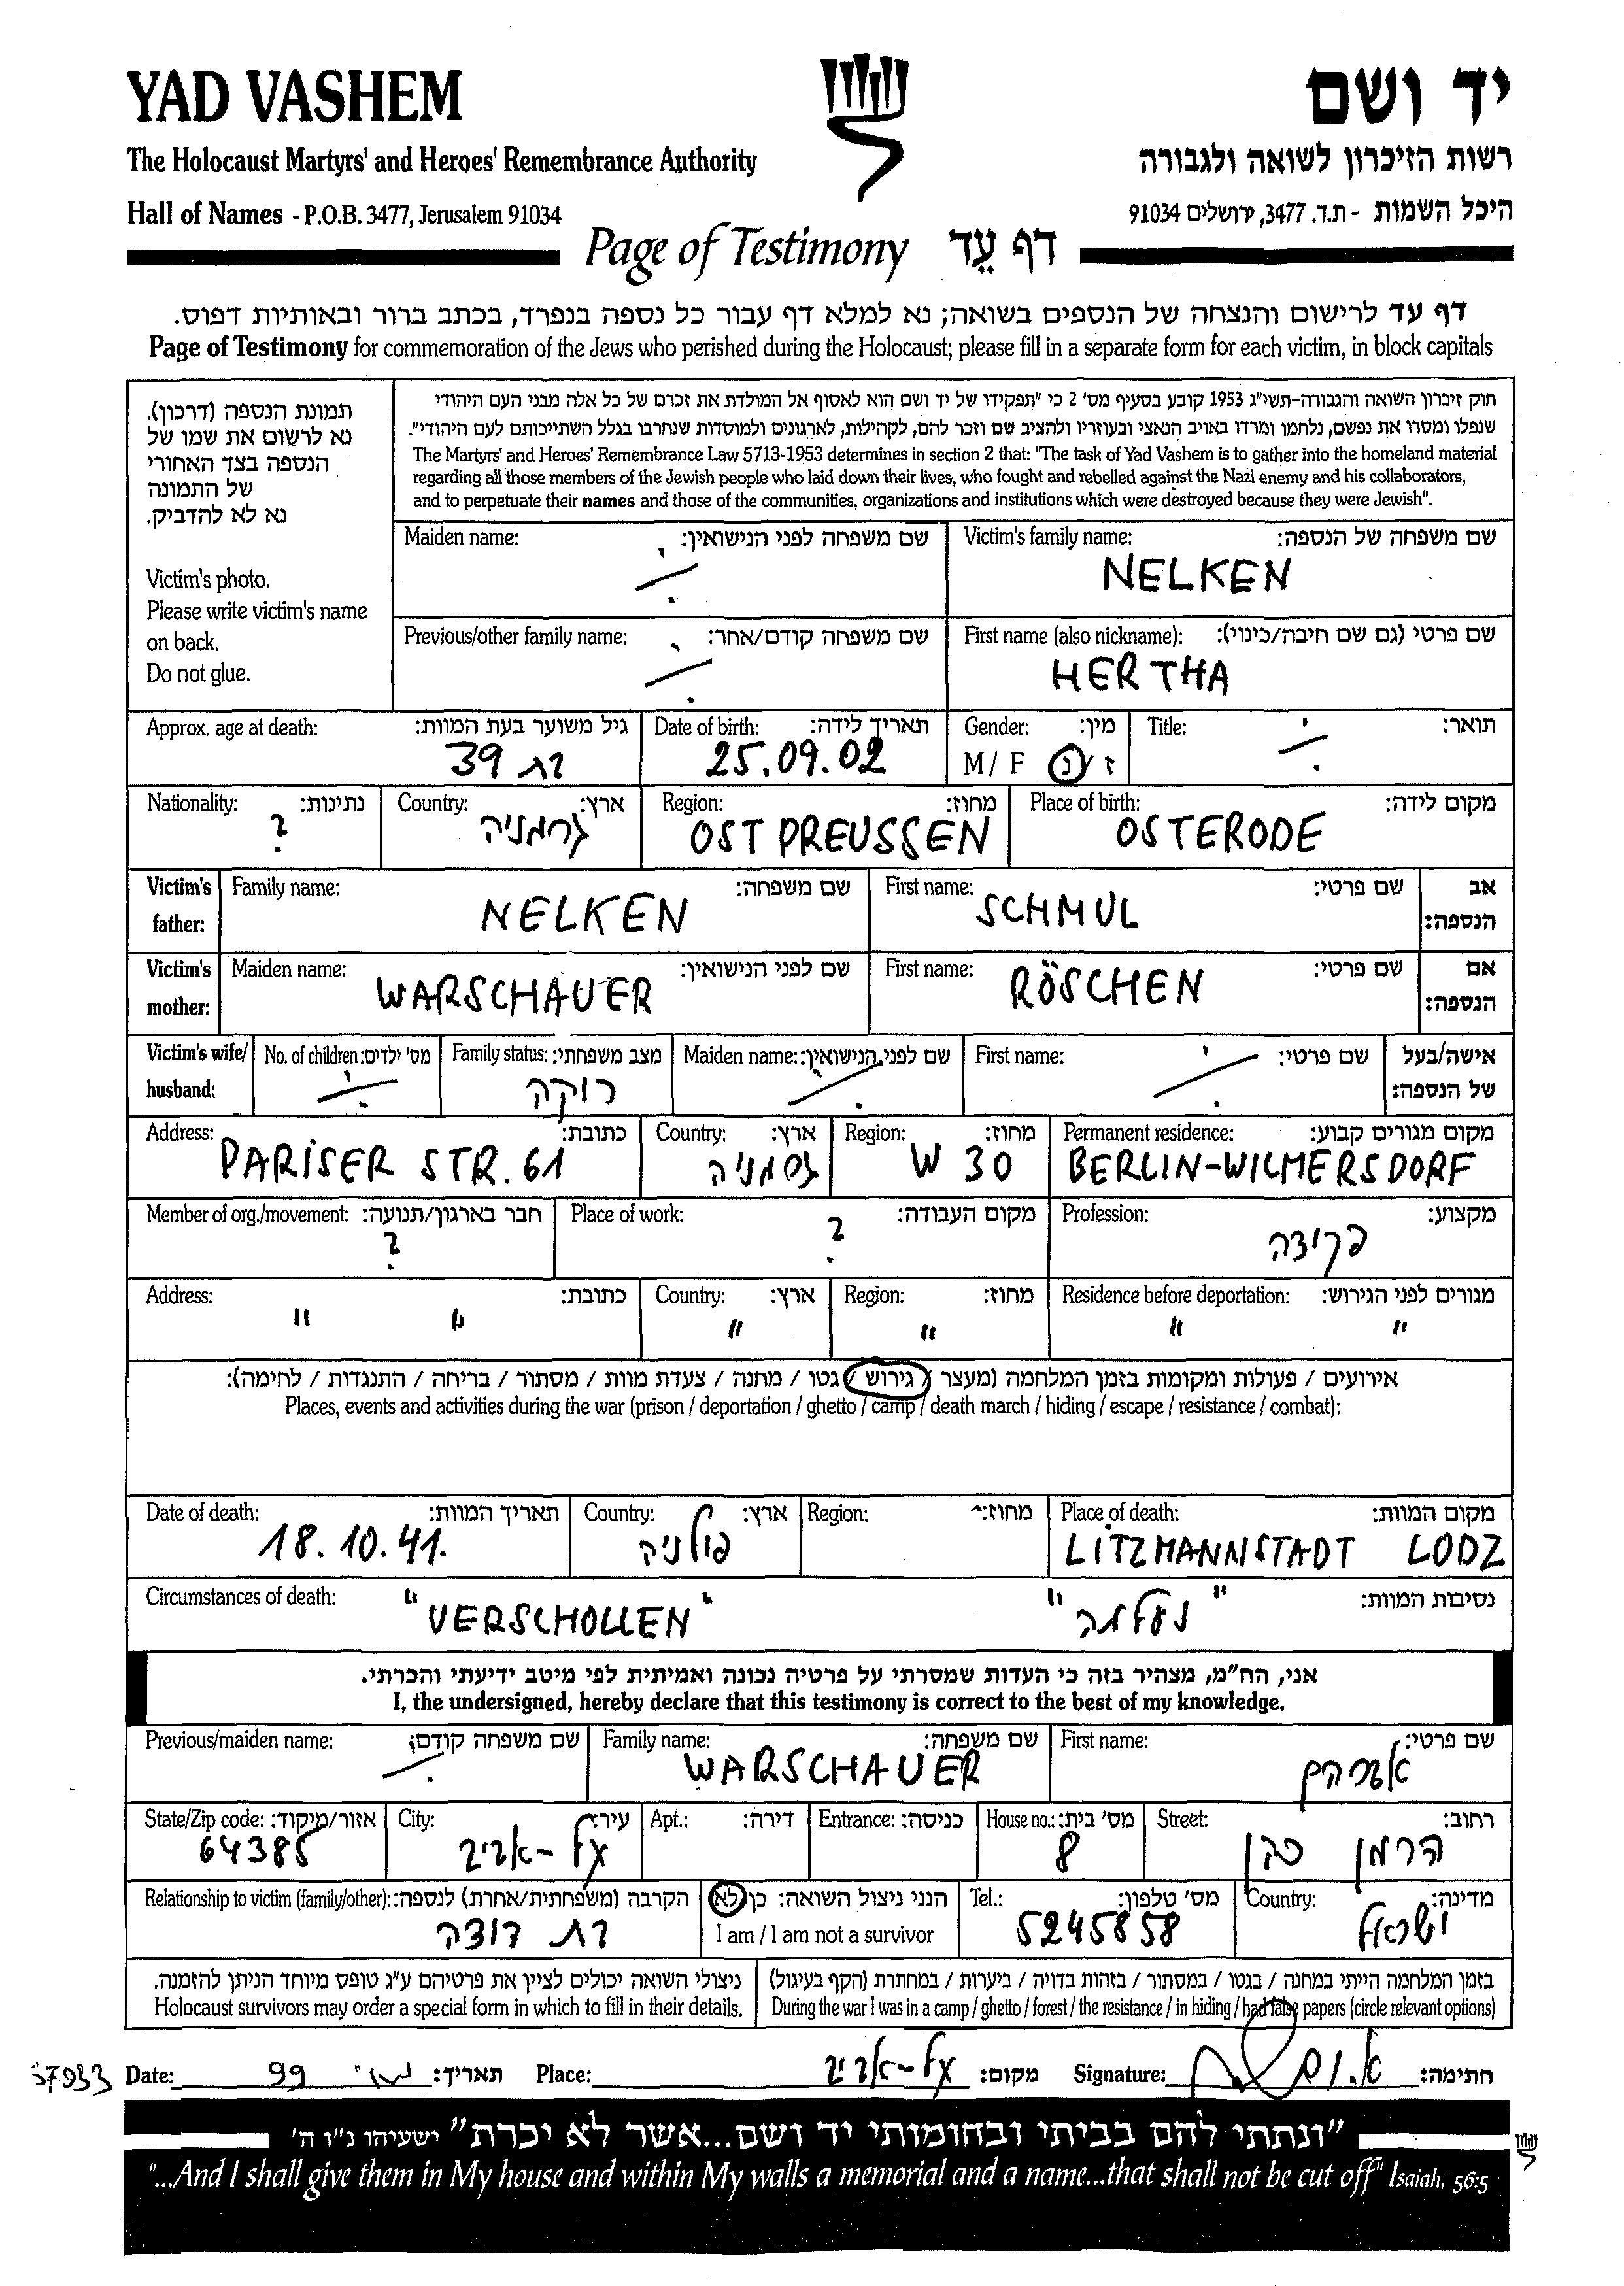 YAD VASHEM
יד ושם
The Holocaust Martyrs' and Heroes' Remembrance Authority
רשות הזיכרון לשואה ולגבורה
Hall of Names - P.O.B. 3477, Jerusalem 91034
היכל השמות - ת.ד. 3477, ירושלים 91034
Page of Testimony דף עֵד
דף עד לרישום והנצחה של הנספים בשואה; נא למלא דף עבור כל נספה בנפרד, בכתב ברור ובאותיות דפוס.
Page of Testimony for commemoration of the Jews who perished during the Holocaust; please fill in a separate form for each victim, in block capitals
תמונת הנספה (דרכון).
נא לרשום את שמו של
הנספה בצד האחורי
של התמונה
נא לא להדביק.
Victim's photo.
Please write victim's name
on back.
Do not glue.
חוק זיכרון השואה והגבורה-תשי"ג 1953 קובע בסעיף מס' 2 כי "תפקידו של יד ושם הוא לאסוף אל המולדת את זכרם של כל אלה מבני העם היהודי
שנפלו ומסרו את נפשם, נלחמו ומרדו באויב הנאצי ובעוזריו ולהציב שם וזכר להם, לקהילות, לארגונים ולמוסדות שנחרבו בגלל השתייכותם לעם היהודי".
The Martyrs' and Heroes' Remembrance Law 5713-1953 determines in section 2 that: "The task of Yad Vashem is to gather into the homeland material
regarding all those members of the Jewish people who laid down their lives, who fought and rebelled against the Nazi enemy and his collaborators,
and to perpetuate their names and those of the communities, organizations and institutions which were destroyed because they were Jewish".
Maiden name: שם משפחה לפני הנישואין:
Victim's family name: שם משפחה של הנספה:
NELKEN
Previous/other family name: שם משפחה קודם/אחר:
First name (also nickname): שם פרטי (גם שם חיבה/כינוי):
HERTHA
Approx. age at death: גיל משוער בעת המוות:
בת 39
Date of birth: תאריך לידה:
25.09.02
Gender: מין:
M / F ז / נ
Title: תואר:
Nationality: נתינות:
?
Country: ארץ:
גרמניה
Region: מחוז:
OST PREUSSEN
Place of birth: מקום לידה:
OSTERODE
Victim's father: Family name: שם משפחה:
NELKEN
First name: שם פרטי: אב הנספה:
SCHMUL
Victim's mother: Maiden name: שם לפני הנישואין:
WARSCHAUER
First name: שם פרטי: אם הנספה:
RÖSCHEN
Victim's wife/ husband: No. of children: מס' ילדים:
Family status: מצב משפחתי:
רווקה
Maiden name: שם לפני הנישואין:
First name: שם פרטי: אישה/בעל של הנספה:
Address: כתובת:
PARISER STR. 61
Country: ארץ:
גרמניה
Region: מחוז:
W 30
Permanent residence: מקום מגורים קבוע:
BERLIN-WILMERSDORF
Member of org./movement: חבר בארגון/תנועה:
?
Place of work: מקום העבודה:
?
Profession: מקצוע:
פקידה
Address: כתובת:
" "
Country: ארץ:
"
Region: מחוז:
"
Residence before deportation: מגורים לפני הגירוש:
" "
אירועים / פעולות ומקומות בזמן המלחמה (מעצר / גירוש / גטו / מחנה / צעדת מוות / מסתור / בריחה / התנגדות / לחימה):
Places, events and activities during the war (prison / deportation / ghetto / camp / death march / hiding / escape / resistance / combat):
Date of death: תאריך המוות:
18.10.41.
Country: ארץ:
פולניה
Region: מחוז:
Place of death: מקום המוות:
LITZMANNSTADT LODZ
Circumstances of death: נסיבות המוות:
"VERSCHOLLEN" "נעלמה"
אני, הח"מ, מצהיר בזה כי העדות שמסרתי על פרטיה נכונה ואמיתית לפי מיטב ידיעתי והכרתי.
I, the undersigned, hereby declare that this testimony is correct to the best of my knowledge.
Previous/maiden name: שם משפחה קודם:
Family name: שם משפחה:
WARSCHAUER
First name: שם פרטי:
אברהם
State/Zip code: אזור/מיקוד:
64385
City: עיר:
תל-אביב
Apt.: דירה:
Entrance: כניסה:
House no.: מס' בית:
8
Street: רחוב:
הרמן כהן
Relationship to victim (family/other): הקרבה (משפחתית/אחרת) לנספה:
בת דודה
הנני ניצול השואה: כן / לא
I am / I am not a survivor
Tel.: מס' טלפון:
5245858
Country: מדינה:
ישראל
ניצולי השואה יכולים לציין את פרטיהם ע"ג טופס מיוחד הניתן להזמנה.
Holocaust survivors may order a special form in which to fill in their details.
בזמן המלחמה הייתי במחנה / בגטו / במסתור / בזהות בדויה / ביערות / במחתרת (הקף בעיגול)
During the war I was in a camp / ghetto / forest / the resistance / in hiding / had false papers (circle relevant options)
Date: 99 תאריך: Place: תל-אביב מקום: Signature: חתימה:
"ונתתי להם בביתי ובחומותי יד ושם...אשר לא יכרת" ישעיהו נ"ו ה'
"...And I shall give them in My house and within My walls a memorial and a name...that shall not be cut off" Isaiah, 56:5